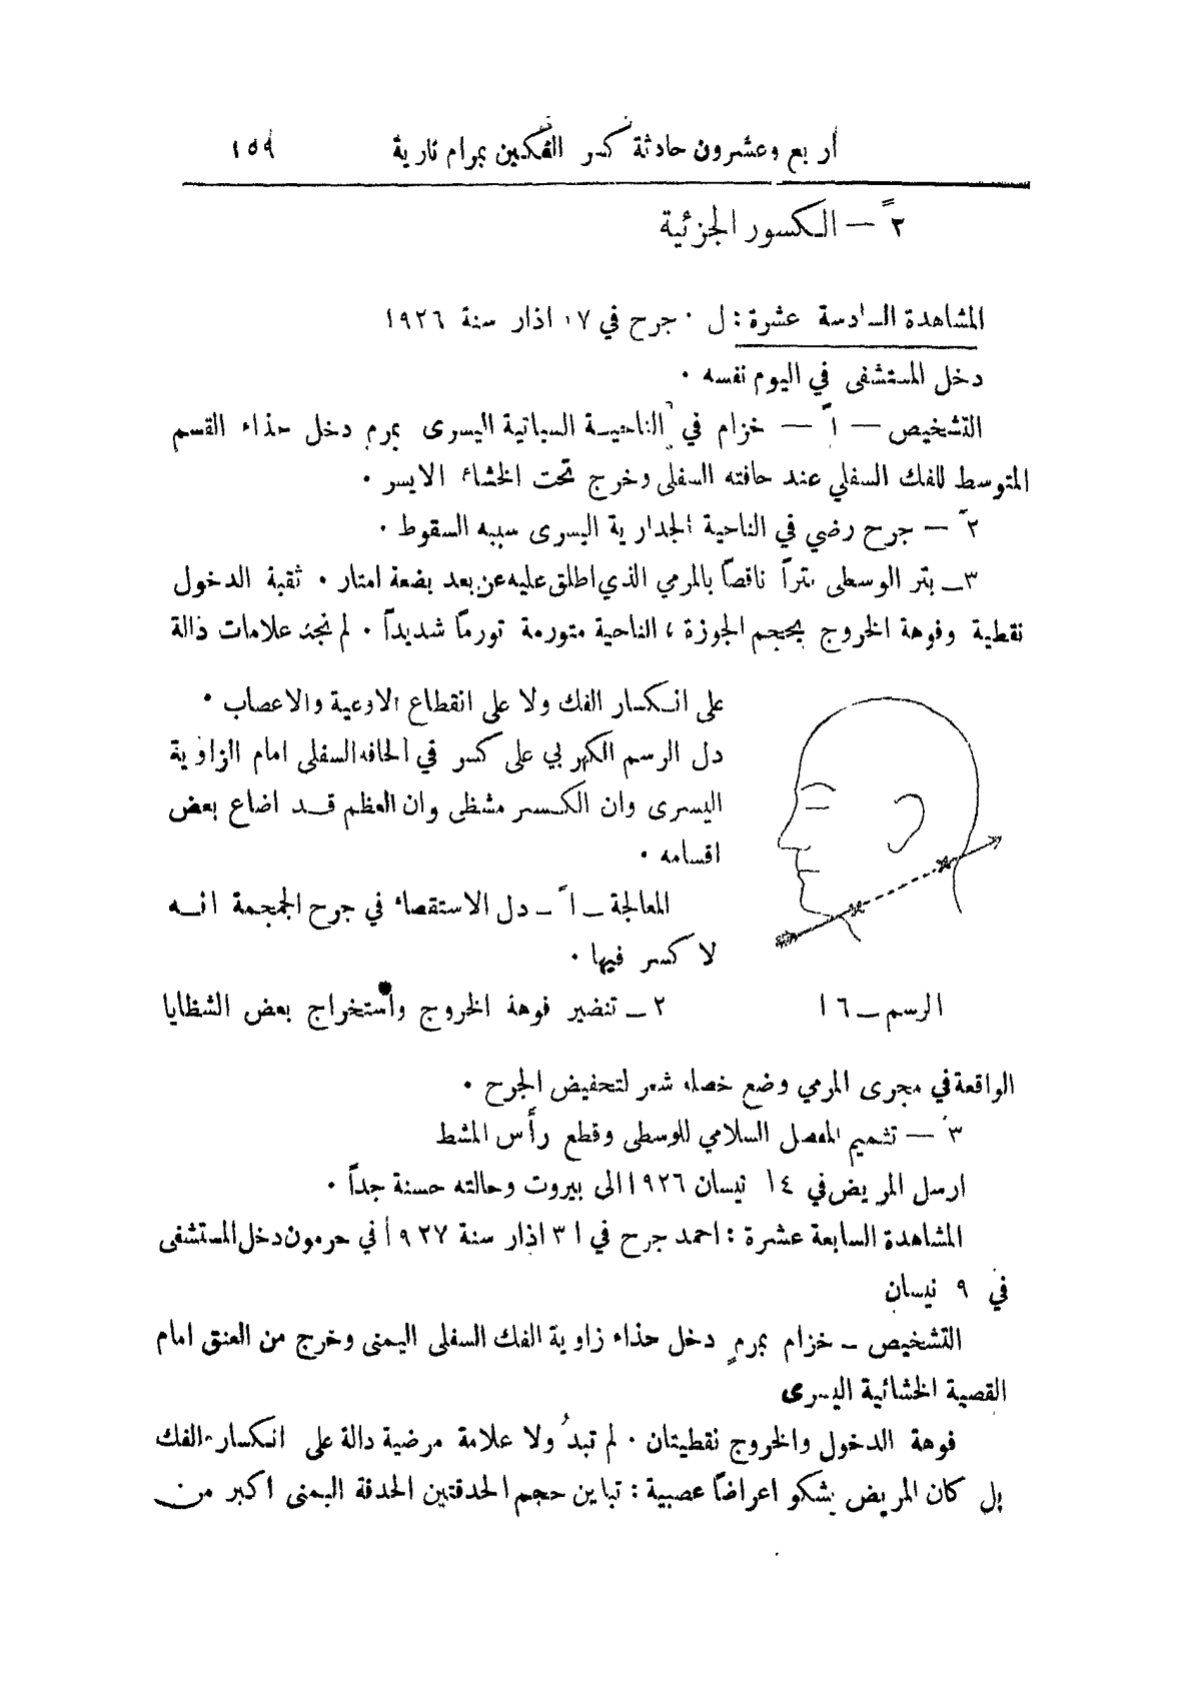 أربع وعشرون حادثة كسر الفكين بمرام نارية ١٥٩
٢ً — الكسور الجزئية
المشاهدة السادسة عشرة : ل ٠ جرح في ١٧ اذار سنة ١٩٢٦
دخل المستشفى في اليوم نفسه ٠
التشخيص — ١ً — خزام في الناحية السباتية اليسرى بمرم دخل حذاء القسم
المتوسط للفك السفلي عند حافته السفلى وخرج تحت الخشاء الايسر ٠
٢ً — جرح رضي في الناحية الجدارية اليسرى سببه السقوط ٠
٣ — بتر الوسطى بتراً ناقصاً بالمرمي الذي اطلق عليه عن بعد بضعة امتار ٠ ثقبة الدخول
نقطية وفوهة الخروج بحجم الجوزة ، الناحية متورمة تورماً شديداً ٠ لم نجد علامات دالة
على انكسار الفك ولا على انقطاع الاوعية والاعصاب ٠
دل الرسم الكهربي على كسر في الحافه السفلى امام الزاوية
اليسرى وان الكسر مشظى وان العظم قد اضاع بعض
اقسامه ٠
المعالجة — ١ً — دل الاستقصاء في جرح الجمجمة انه
لا كسر فيها ٠
الرسم — ١٦
٢ — تنضير فوهة الخروج واستخراج بعض الشظايا
الواقعة في مجرى المرمي وضع خصلة شعر لتحفيض الجرح ٠
٣ — تتميم المفصل السلامي للوسطى وقطع رأس المشط
ارسل المريض في ١٤ نيسان ١٩٢٦ الى بيروت وحالته حسنة جداً ٠
المشاهدة السابعة عشرة : احمد جرح في ٣١ اذار سنة ١٩٢٧ في حرمون دخل المستشفى
في ٩ نيسان
التشخيص — خزام بمرمٍ دخل حذاء زاوية الفك السفلى اليمنى وخرج من العنق امام
القصية الخشائية اليسرى
فوهة الدخول والخروج نقطيتان ٠ لم تبدُ ولا علامة مرضية دالة على انكسار الفك
بل كان المريض يشكو اعراضاً عصبية : تباين حجم الحدقتين الحدقة اليمنى اكبر من